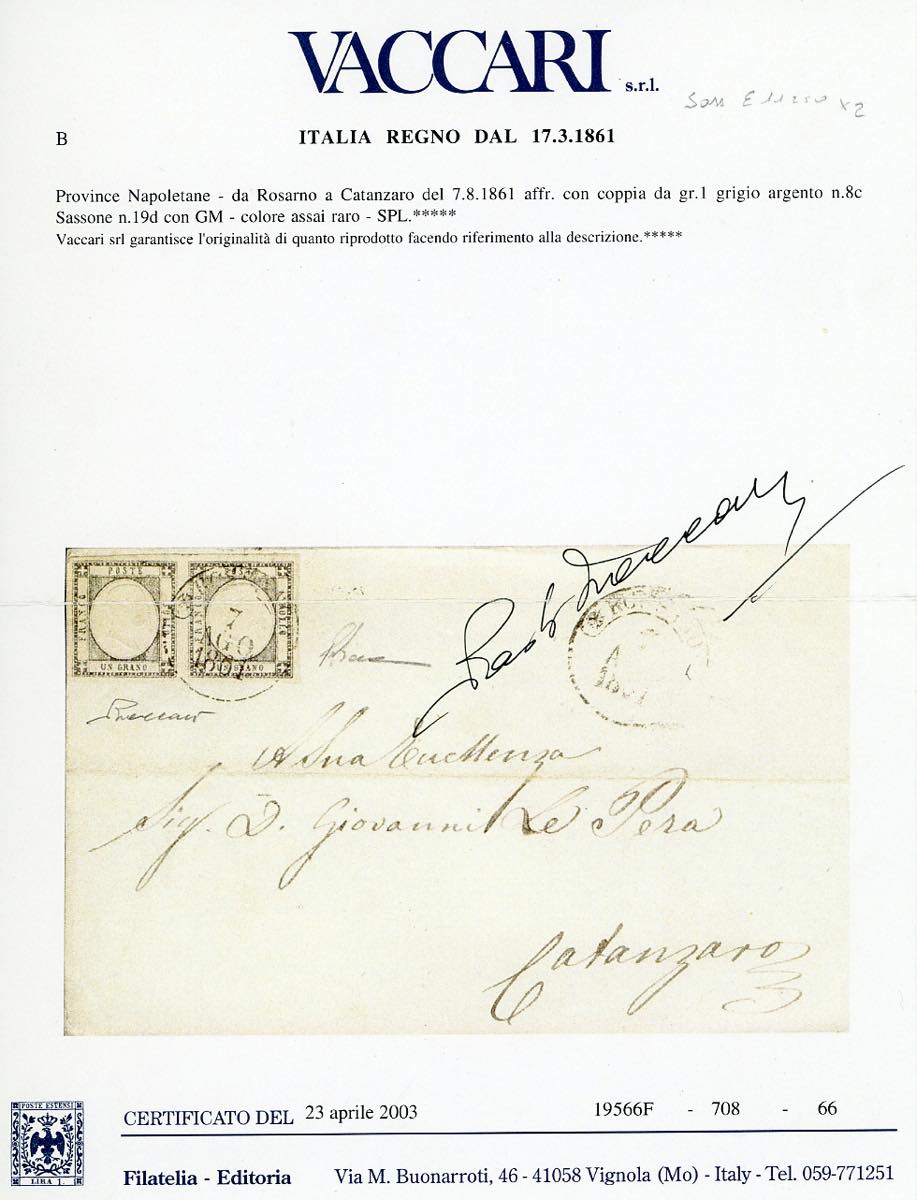 VACCARI s.r.l.
x2
B ITALIA REGNO DAL 17.3.1861
Province Napoletane - da Rosarno a Catanzaro del 7.8.1861 affr. con coppia da gr.1 grigio argento n.8c
Sassone n.19d con GM - colore assai raro - SPL.*****
Vaccari srl garantisce l'originalità di quanto riprodotto facendo riferimento alla descrizione.*****
POSTE
FRANCO
UN GRANO
FRANCO
UN GRANO
7
AGO
1861
Vaccari
A Sua Eccellenza
Sig. D. Giovanni Le Pera
Catanzaro
POSTE ESTENSI
LIRA 1.
CERTIFICATO DEL 23 aprile 2003 19566F - 708 - 66
Filatelia - Editoria Via M. Buonarroti, 46 - 41058 Vignola (Mo) - Italy - Tel. 059-771251